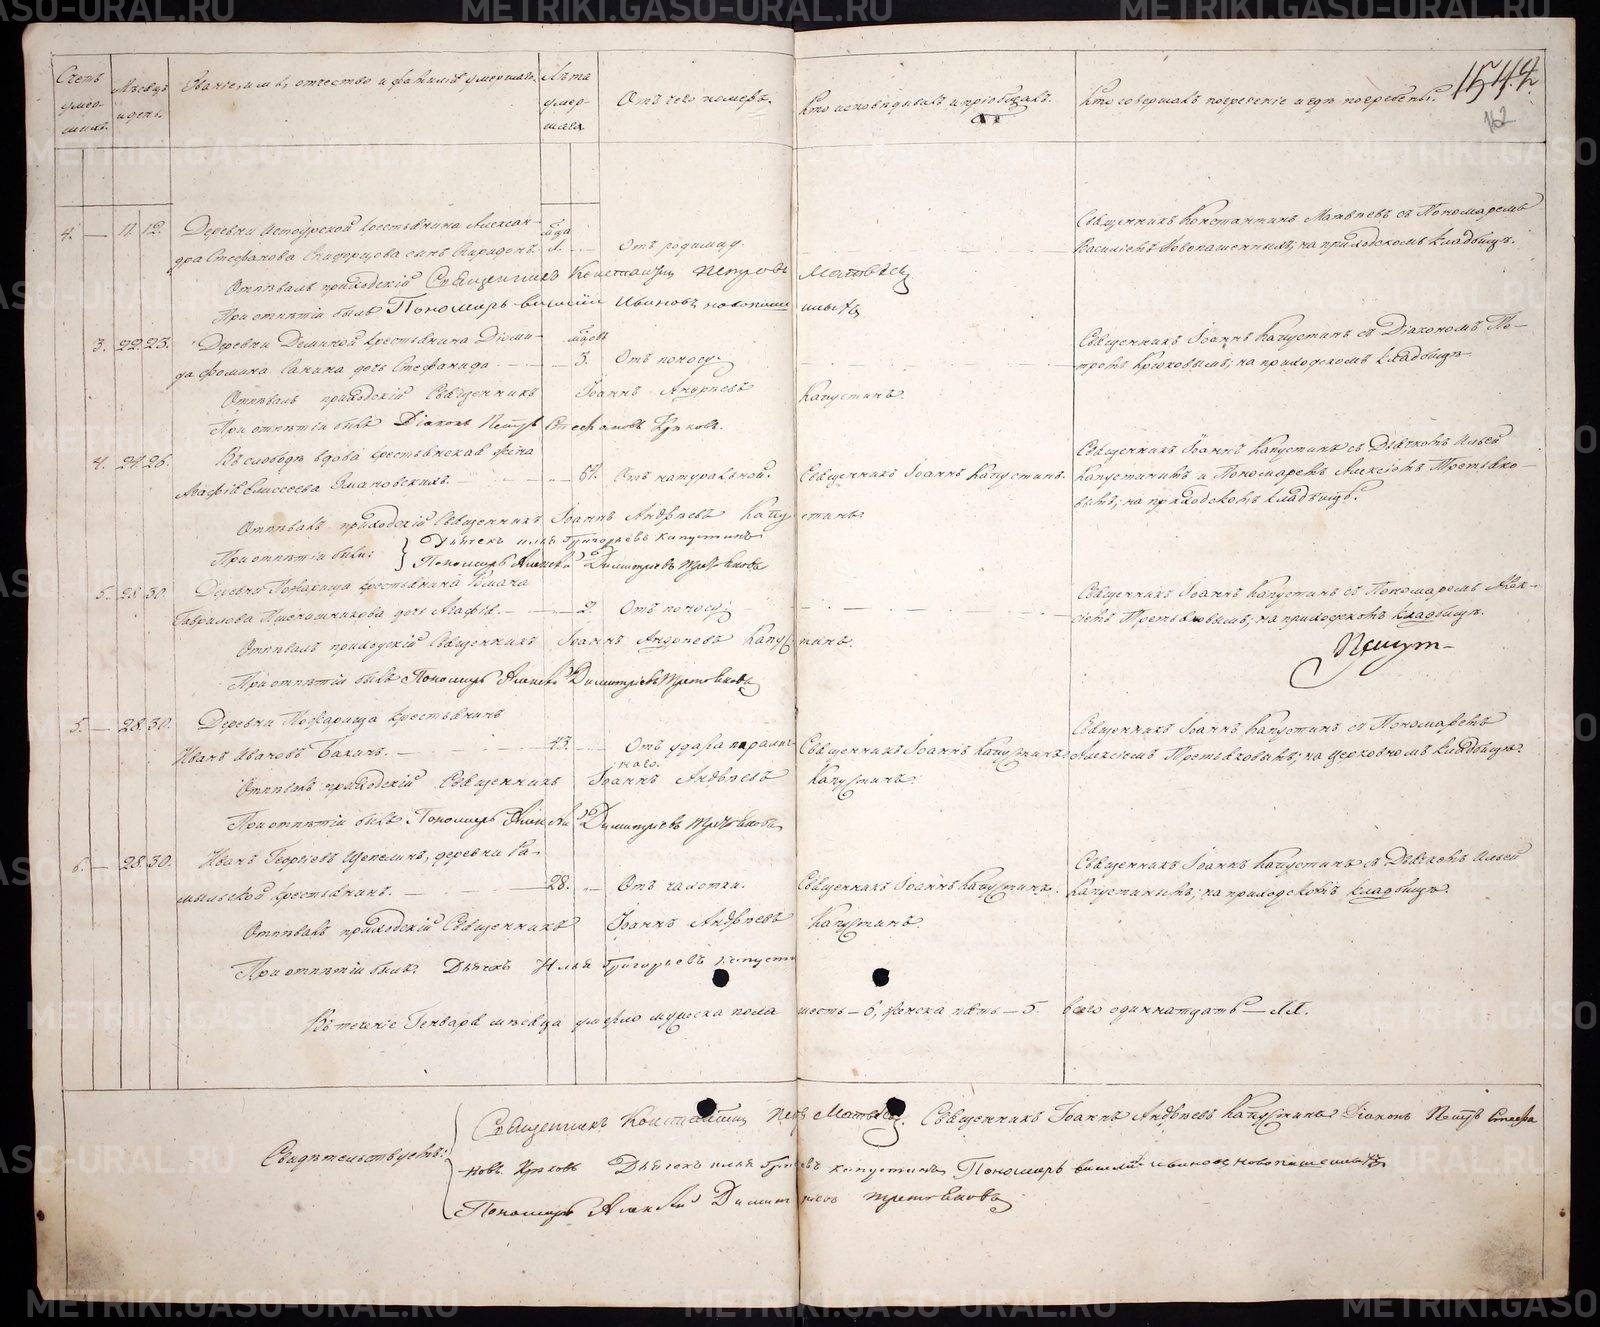 Счетъ умер-шихъ.
Мѣсяцъ и день.
Званіе, имя, отчество и фамилія умершаго.
Лѣта умер-шаго
Отъ чего померъ.
Кто исповѣдывалъ и пріобщалъ.
Кто совершалъ погребеніе и гдѣ погребены.
1544.
162
4. — 11. 12. Деревни крестьянина Алексан-
дра Стефанова сынъ Спиридонъ. года 1. Отъ родимцу.
Священникъ Константинъ Матвѣевъ съ Пономаремъ
Василіемъ Новопашеннымъ; на приходскомъ кладбищѣ.
Отпѣвалъ приходскій Священникъ Константинъ Петровъ Матвѣевъ
При отпѣтіи былъ Пономарь Василій Ивановъ Новопашенныхъ
3. 22. 23. Деревни Деминой крестьянина Діоми-
да Ѳомина Санина дочь Стефанида. — мѣсяцовъ 3. Отъ поносу.
Священникъ Іоаннъ Капустинъ съ Діакономъ Пе-
тромъ Крюковымъ; на приходскомъ кладбищѣ.
Отпѣвалъ приходскій Священникъ Іоаннъ Андреевъ Капустинъ.
При отпѣтіи былъ Діаконъ Петръ Стефановъ Крюковъ.
4. 24. 26. Въ слободѣ вдова крестьянская жена
Агафія Елисеева — 67. Отъ натуральной. Священникъ Іоаннъ Капустинъ.
Священникъ Іоаннъ Капустинъ съ Дьячкомъ Ильей
Капустинымъ и Пономаремъ Алексіемъ Третьяко-
вымъ; на приходскомъ кладбищѣ.
Отпѣвалъ приходскій Священникъ Іоаннъ Андреевъ Капустинъ
При отпѣтіи были: Дьячекъ Илья Григорьевъ Капустинъ
Пономарь Алексѣй Димитріевъ Третьяковъ
5. 28. 30. Деревни Пожарища крестьянина Романа
Гаврилова Пшеннишникова дочь Агафія. — 2. Отъ поносу.
Священникъ Іоаннъ Капустинъ съ Пономаремъ Алек-
сіемъ Третьяковымъ; на приходскомъ кладбищѣ.
Отпѣвалъ приходскій Священникъ Іоаннъ Андреевъ Капустинъ.
При отпѣтіи былъ Пономарь Алексѣй Димитріевъ Третьяковъ
5. — 28. 30. Деревни Пожарища крестьянинъ
Иванъ Ивановъ Бакинъ. — 43. — Отъ удара паралич-
наго. Священникъ Іоаннъ Капустинъ
Священникъ Іоаннъ Капустинъ съ Пономаремъ
Алексіемъ Третьяковымъ; на церковномъ кладбищѣ.
Отпѣвалъ приходскій Священникъ Іоаннъ Андреевъ Капустинъ.
При отпѣтіи былъ Пономарь Алексѣй Димитріевъ Третьяковъ
6. — 28. 30. Иванъ Георгіевъ Щепелинъ, деревни Ра-
мыльской крестьянинъ. — 28. — Отъ чахотки. Священникъ Іоаннъ Капустинъ.
Священникъ Іоаннъ Капустинъ съ Дьячкомъ Ильей
Капустинымъ; на приходскомъ кладбищѣ.
Отпѣвалъ приходскій Священникъ Іоаннъ Андреевъ Капустинъ.
При отпѣтіи былъ Дьячекъ Илья Григорьевъ Капустинъ
Въ теченіе Генваря мѣсяца умерло мужеска пола шесть — 6, женска пять — 5. всего одиннатцать — 11.
Свидѣтельствуетъ:
Священникъ Константинъ Петровъ Матвѣевъ. Священникъ Іоаннъ Андреевъ Капустинъ Діаконъ Петръ Стефа
новъ Крюковъ Дьячекъ Илья Григорьевъ Капустинъ Пономарь Василій Ивановъ Новопашенныхъ
Пономарь Алексѣй Димитріевъ Третьяковъ
METRIKI.GASO-URAL.RU